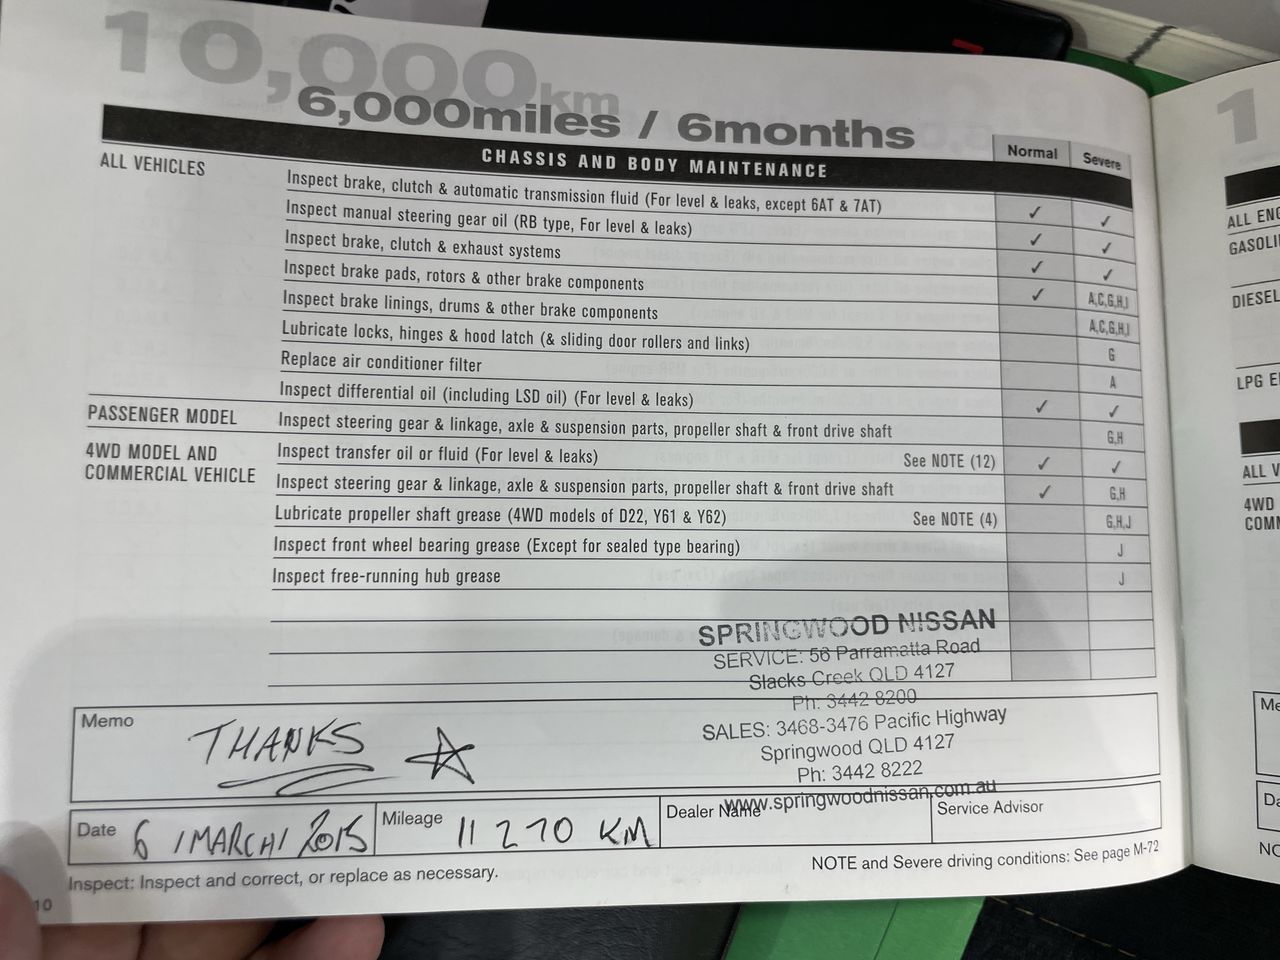 10,000km
6,000miles / 6months
CHASSIS AND BODY MAINTENANCE Normal Severe
ALL VEHICLES Inspect brake, clutch & automatic transmission fluid (For level & leaks, except 6AT & 7AT) ✓ ✓
Inspect manual steering gear oil (RB type, For level & leaks) ✓ ✓
Inspect brake, clutch & exhaust systems ✓ ✓
Inspect brake pads, rotors & other brake components ✓ A,C,G,H,I
Inspect brake linings, drums & other brake components A,C,G,H,I
Lubricate locks, hinges & hood latch (& sliding door rollers and links) G
Replace air conditioner filter A
Inspect differential oil (including LSD oil) (For level & leaks) ✓ ✓
PASSENGER MODEL Inspect steering gear & linkage, axle & suspension parts, propeller shaft & front drive shaft G,H
4WD MODEL AND Inspect transfer oil or fluid (For level & leaks) See NOTE (12) ✓ ✓
COMMERCIAL VEHICLE Inspect steering gear & linkage, axle & suspension parts, propeller shaft & front drive shaft ✓ G,H
Lubricate propeller shaft grease (4WD models of D22, Y61 & Y62) See NOTE (4) G,H,J
Inspect front wheel bearing grease (Except for sealed type bearing) J
Inspect free-running hub grease J
SPRINGWOOD NISSAN
SERVICE: 56 Parramatta Road
Slacks Creek QLD 4127
Ph: 3442 8200
SALES: 3468-3476 Pacific Highway
Springwood QLD 4127
Ph: 3442 8222
www.springwoodnissan.com.au
Memo THANKS
Date 6 / MARCH / 2015 Mileage 11 270 KM Dealer Name Service Advisor
Inspect: Inspect and correct, or replace as necessary. NOTE and Severe driving conditions: See page M-72
10
1
ALL ENG
GASOLI
DIESEL
LPG E
ALL V
4WD
COMM
Me
Da
NO